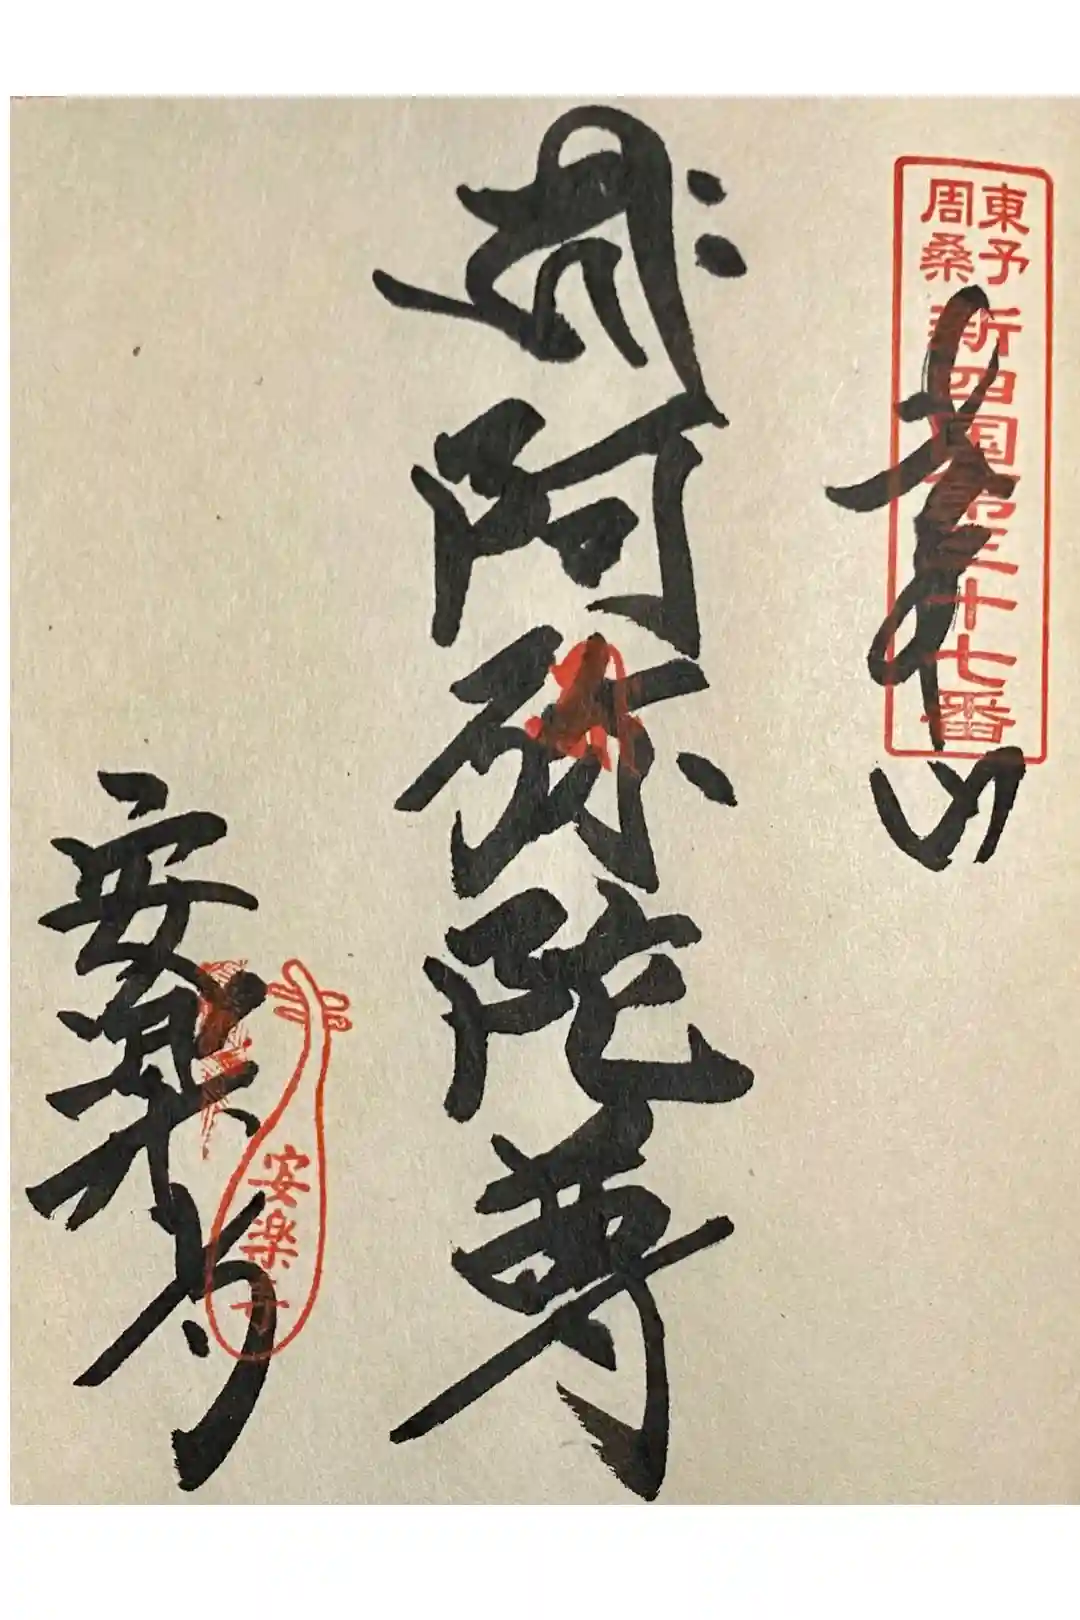 東予
周桑
新四国第三十七番
阿弥陀尊
安楽寺
安楽寺